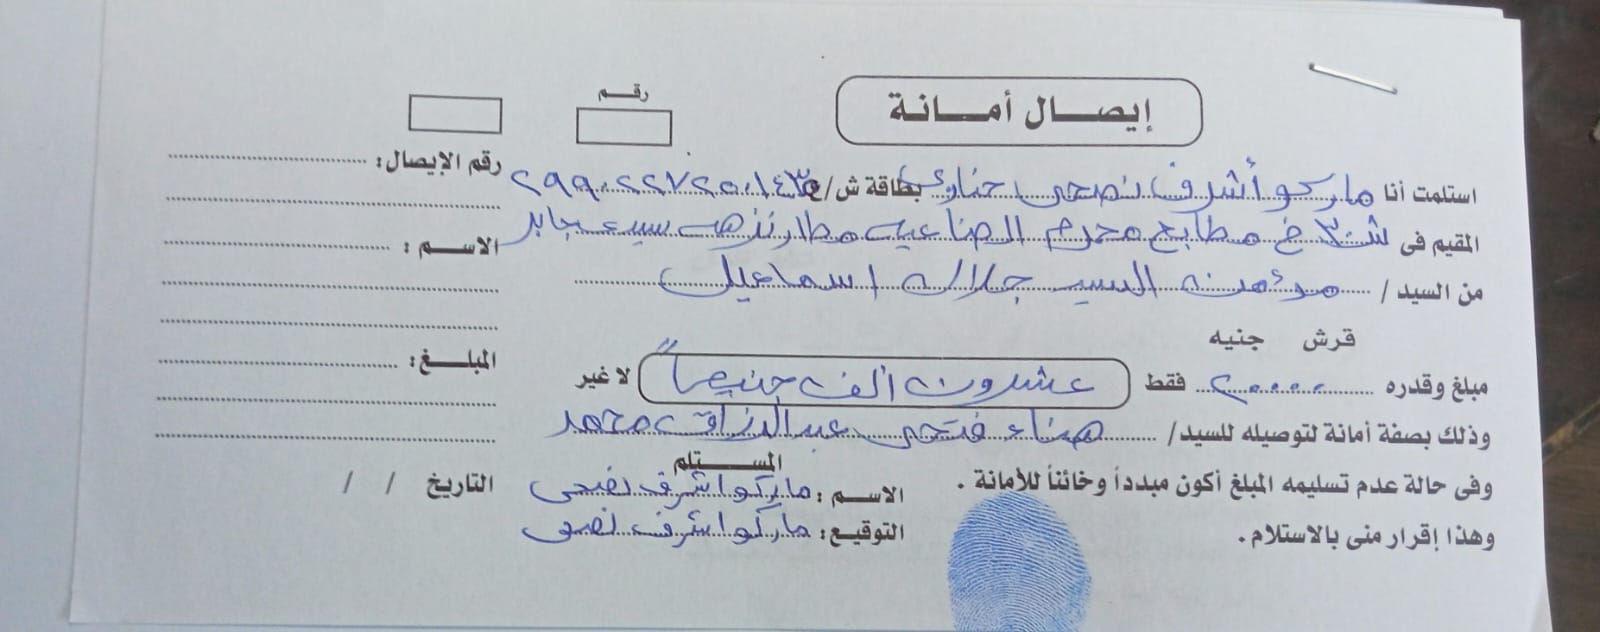 إيصال أمانة
رقم
استلمت أنا ماركو أشرف نصحى حناوى بطاقة ش/ع ٢٩٩٠٢٢٧٢٥٠١٤٣٥
المقيم فى ش ٣٠ خ مطابع محرم الصناعيه مطار نزهه سيدى جابر
من السيد / مؤمنه السيد جلال اسماعيل
قرش جنيه
مبلغ وقدره ٢٠٠٠٠ فقط عشرون ألف جنيهاً لا غير
وذلك بصفة أمانة لتوصيله للسيد/ هناء فتحى عبد الرزاق محمد
وفى حالة عدم تسليمه المبلغ أكون مبدداً وخائناً للأمانة .
وهذا إقرار منى بالاستلام .
المستلم
الاسم : ماركو اشرف نصحى
التوقيع : ماركو اشرف نصحى
رقم الإيصال :
الاسم :
المبلغ :
التاريخ / /